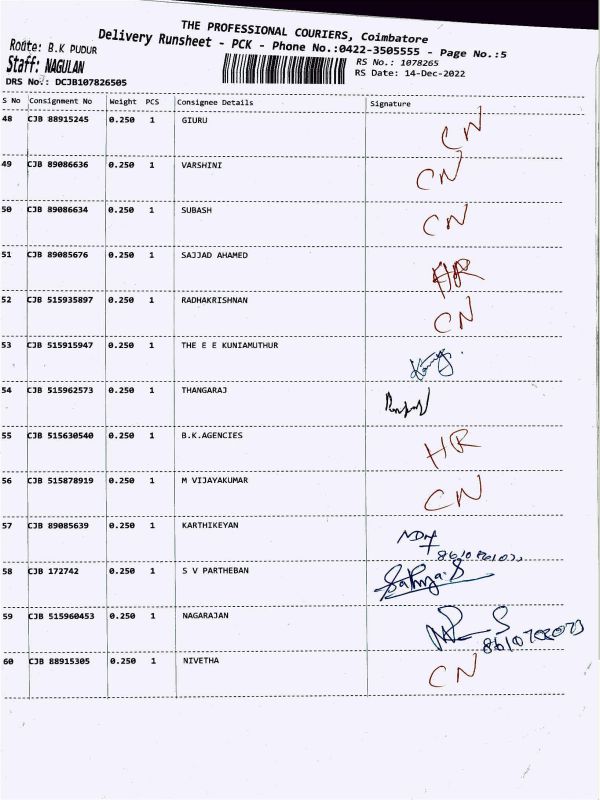 THE PROFESSIONAL COURIERS, Coimbatore
Delivery Runsheet - PCK - Phone No.:0422-3505555 - Page No.:5
Route: B.K PUDUR
RS No.: 1078265
Staff: NAGULAN
RS Date: 14-Dec-2022
DRS No.: DCJB107826505
S No Consignment No Weight PCS Consignee Details Signature
48 CJB 88915245 0.250 1 GIURU CN
49 CJB 89086636 0.250 1 VARSHINI CN
50 CJB 89086634 0.250 1 SUBASH CN
51 CJB 89085676 0.250 1 SAJJAD AHAMED HR
52 CJB 515935897 0.250 1 RADHAKRISHNAN CN
53 CJB 515915947 0.250 1 THE E E KUNIAMUTHUR
54 CJB 515962573 0.250 1 THANGARAJ
55 CJB 515630540 0.250 1 B.K.AGENCIES HR
56 CJB 515878919 0.250 1 M VIJAYAKUMAR CN
57 CJB 89085639 0.250 1 KARTHIKEYAN
58 CJB 172742 0.250 1 S V PARTHEBAN Sathya.S
59 CJB 515960453 0.250 1 NAGARAJAN
60 CJB 88915305 0.250 1 NIVETHA CN